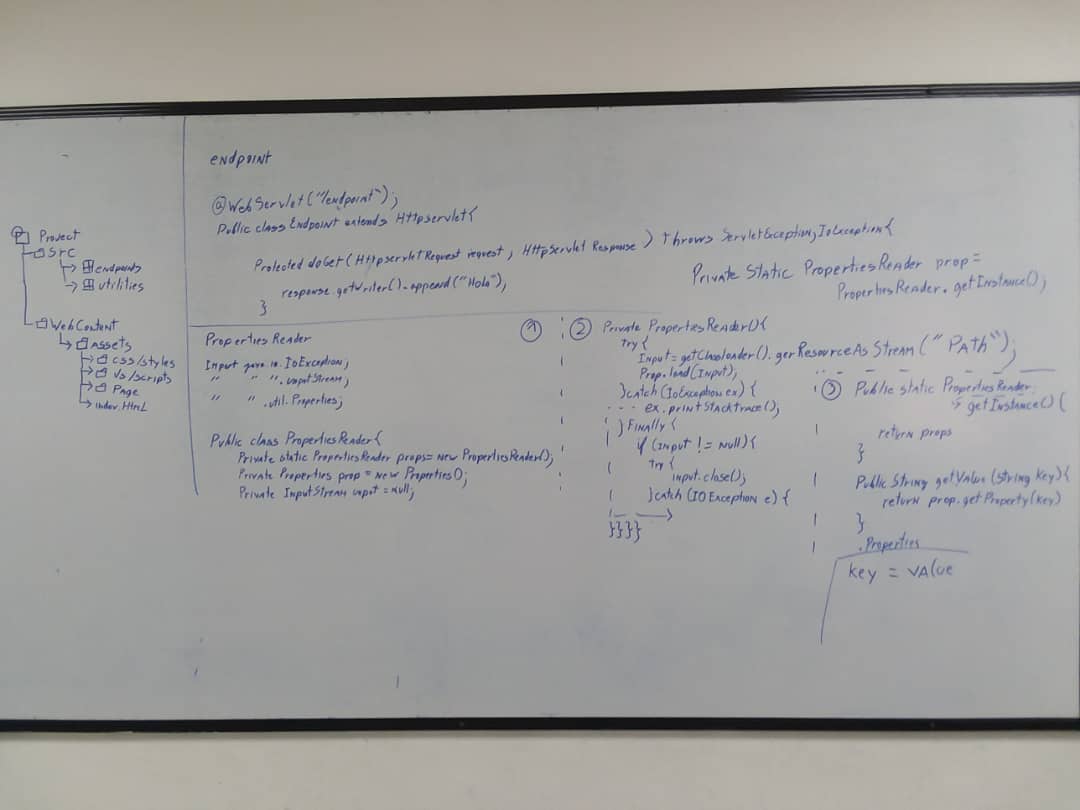 Project
Src
endpoints
utilities
WebContent
Assets
css/styles
Js/scripts
Page
index.HTML
endpoint
@WebServlet("/endpoint");
Public class Endpoint extends Httpservlet{
Protected doGet(HttpservletRequest request, HttpServlet Response) Throws ServletException, IoException{
response.getWriter().append("Hola");
}
Private Static PropertiesReader prop =
PropertiesReader.getInstance();
Properties Reader
Import java.io.IoException;
" " ".inputStream;
" " .util.Properties;
Public class PropertiesReader{
Private static PropertiesReader props= new PropertiesReader();
Private Properties prop = new Properties();
Private InputStream input = null;
1
2 Private PropertiesReader(){
try{
Input = getClassloader().gerResourceAs Stream("PAth");
Prop.load(Input);
}catch(IoException ex){
ex.printStacktrace();
}Finally{
if (Input != null){
try{
input.close();
}catch(IOException e){
}}}}
3 Public static PropertiesReader
getInstance(){
return props
}
Public String getValue (String key){
return prop.getProperty(key)
}
.Properties
key = value